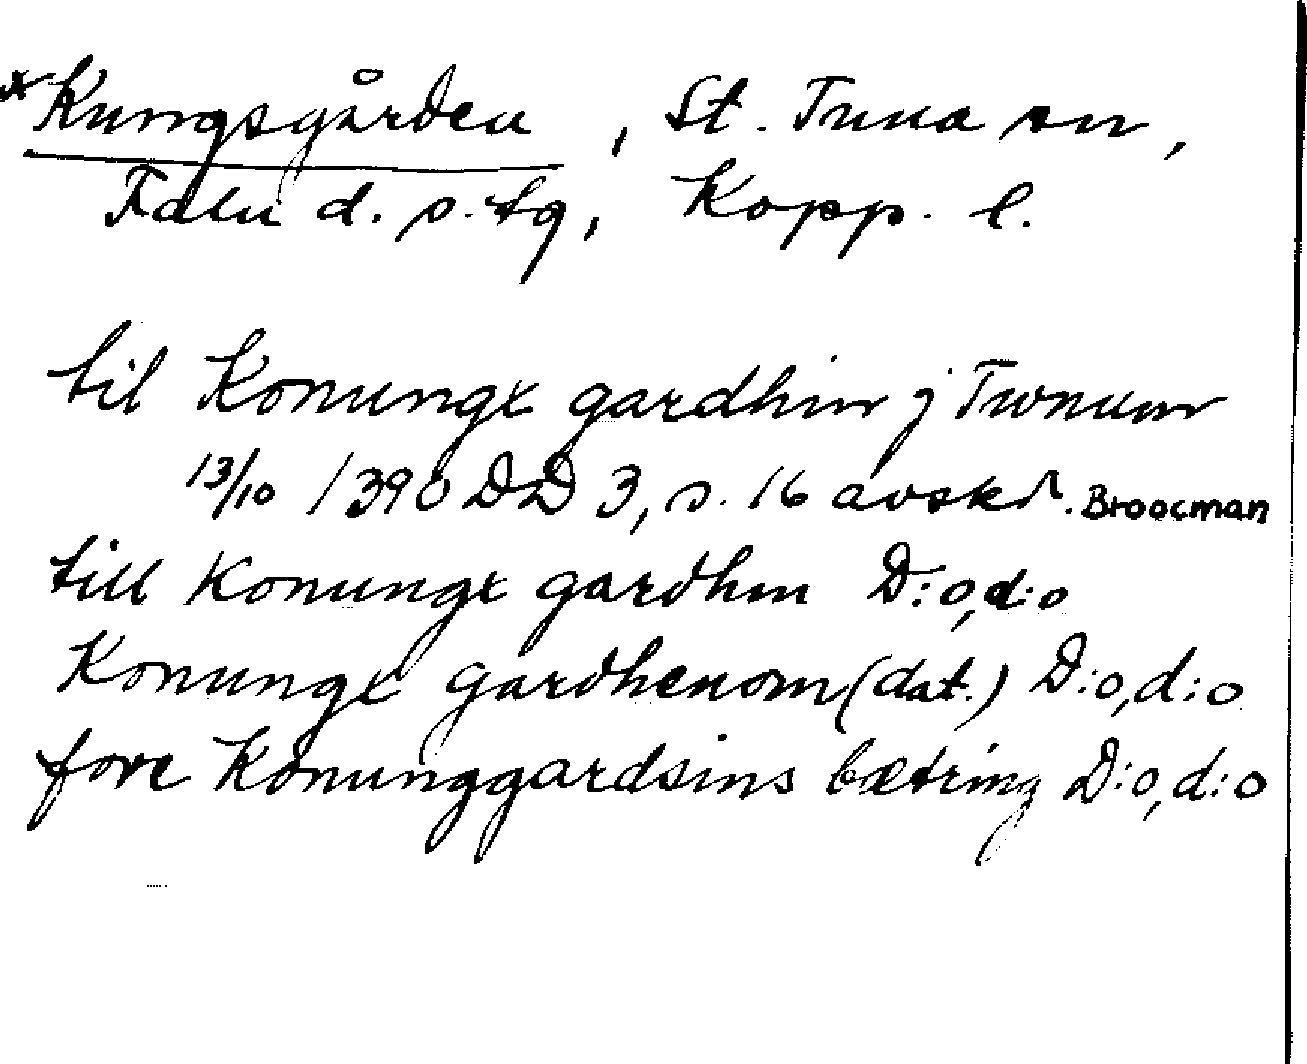 *Kungsgården, St. Tuna sn,
Falu d. s. tg, Kopp. l.
til Konungx gardhin j Twnum
13/10 1390 DD 3, s. 16 avskr. Broocman
till Konungx gardhin D:o, d:o
Konungx gardhenom (dat.) D:o, d:o
fore Konunggardsins bætring D:o, d:o